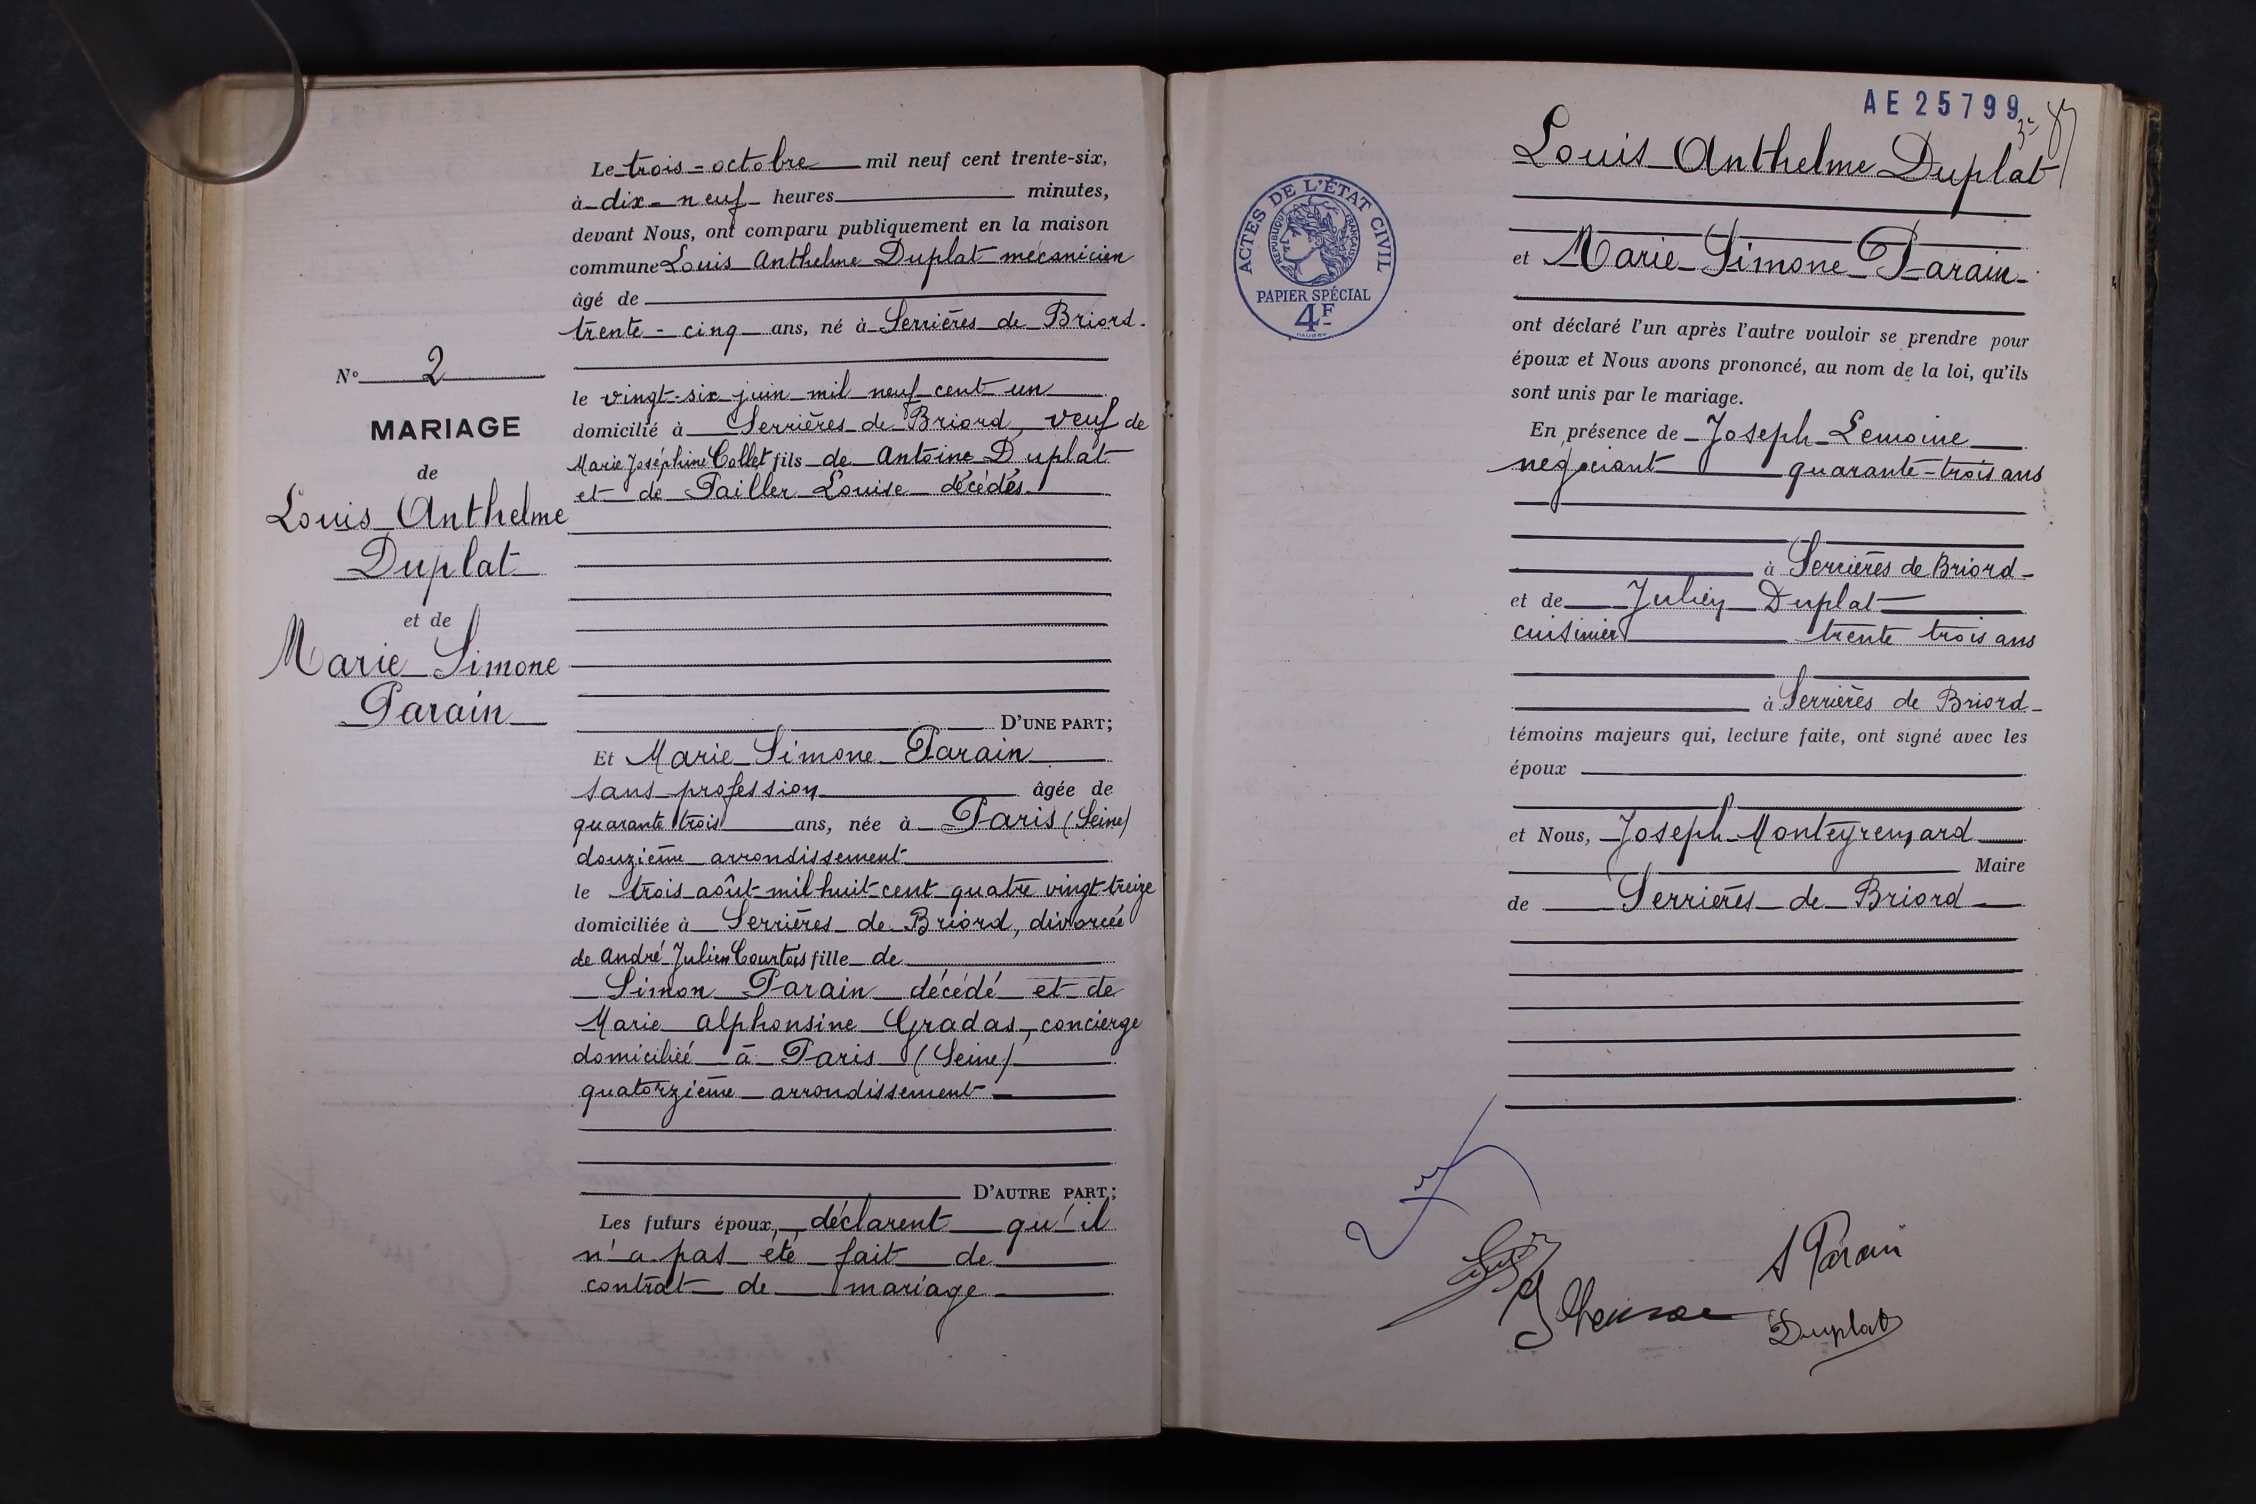 N° 2
MARIAGE
de
Louis Anthelme
Duplat
et de
Marie Simone
Parain
Le trois octobre mil neuf cent trente-six,
à dix-neuf heures minutes,
devant Nous, ont comparu publiquement en la maison
commune Louis Anthelme Duplat mécanicien
âgé de
trente-cinq ans, né à Serrières de Briord.
le vingt-six juin mil neuf cent un
domicilié à Serrières de Briord, veuf de
Marie Joséphine Collet fils de Antoine Duplat
et de Pailler Louise décédés
D'UNE PART;
Et Marie Simone Parain
sans profession âgée de
quarante trois ans, née à Paris (Seine)
douzième arrondissement
le trois août mil huit cent quatre vingt treize
domiciliée à Serrières de Briord, divorcée
de André Julien Courtois fille de
Simon Parain décédé et de
Marie Alphonsine Gradas, concierge
domiciliée à Paris (Seine)
quatorzième arrondissement
D'AUTRE PART;
Les futurs époux, déclarent qu'il
n'a pas été fait de
contrat de mariage
AE25799
ACTES DE L'ÉTAT CIVIL
REPUBLIQUE FRANÇAISE
PAPIER SPÉCIAL
4F
Louis Anthelme Duplat
et Marie Simone Parain
ont déclaré l'un après l'autre vouloir se prendre pour
époux et Nous avons prononcé, au nom de la loi, qu'ils
sont unis par le mariage.
En présence de Joseph Lemoine
négociant quarante-trois ans
à Serrières de Briord
et de Julien Duplat
cuisinier trente trois ans
à Serrières de Briord
témoins majeurs qui, lecture faite, ont signé avec les
époux
et Nous, Joseph Monteyremard
Maire
de Serrières de Briord
S Parain
Duplat